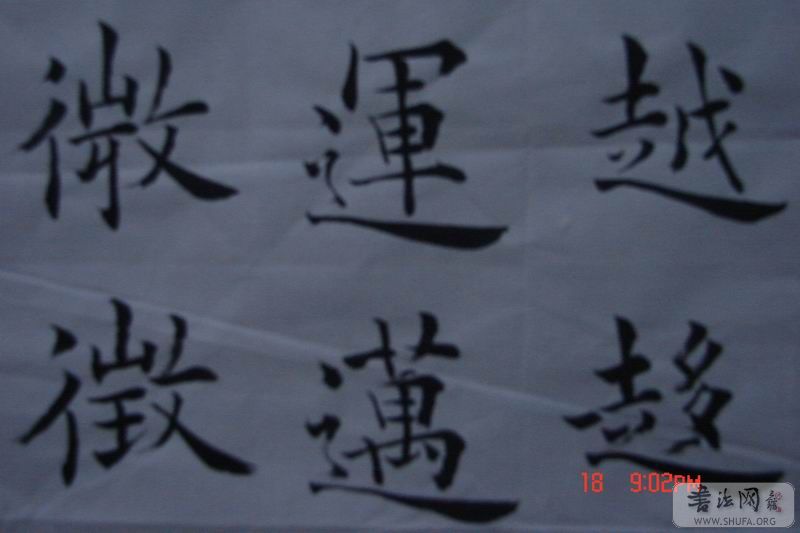 越趍
運邁
微徵
18 9:02PM
書法网
WWW.SHUFA.ORG